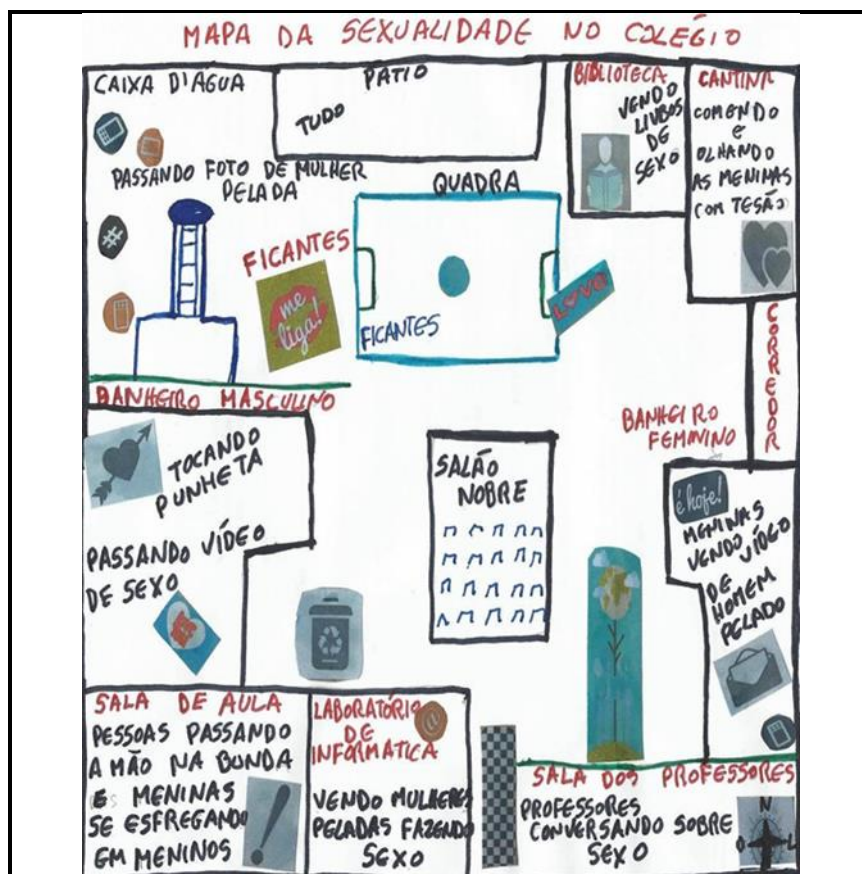 MAPA DA SEXUALIDADE NO COLÉGIO
CAIXA D'ÁGUA
PASSANDO FOTO DE MULHER
PELADA
#
PÁTIO
TUDO
BIBLIOTECA
VENDO
LIVROS
DE
SEXO
CANTINA
COMENDO
E
OLHANDO
AS MENINAS
COM TESÃO
FICANTES
me
liga!
QUADRA
FICANTES
LOVE
CORREDOR
BANHEIRO MASCULINO
TOCANDO
PUNHETA
PASSANDO VÍDEO
DE SEXO
SALÃO
NOBRE
BANHEIRO
FEMININO
é hoje!
MENINAS
VENDO VÍDEO
DE
HOMEM
PELADO
SALA DE AULA
PESSOAS PASSANDO
A MÃO NA BUNDA
E MENINAS
SE ESFREGANDO
EM MENINOS
!
LABORATÓRIO
DE
INFORMÁTICA
@
VENDO MULHERES
PELADAS FAZENDO
SEXO
SALA DOS PROFESSORES
PROFESSORES
CONVERSANDO SOBRE
SEXO
N
O L